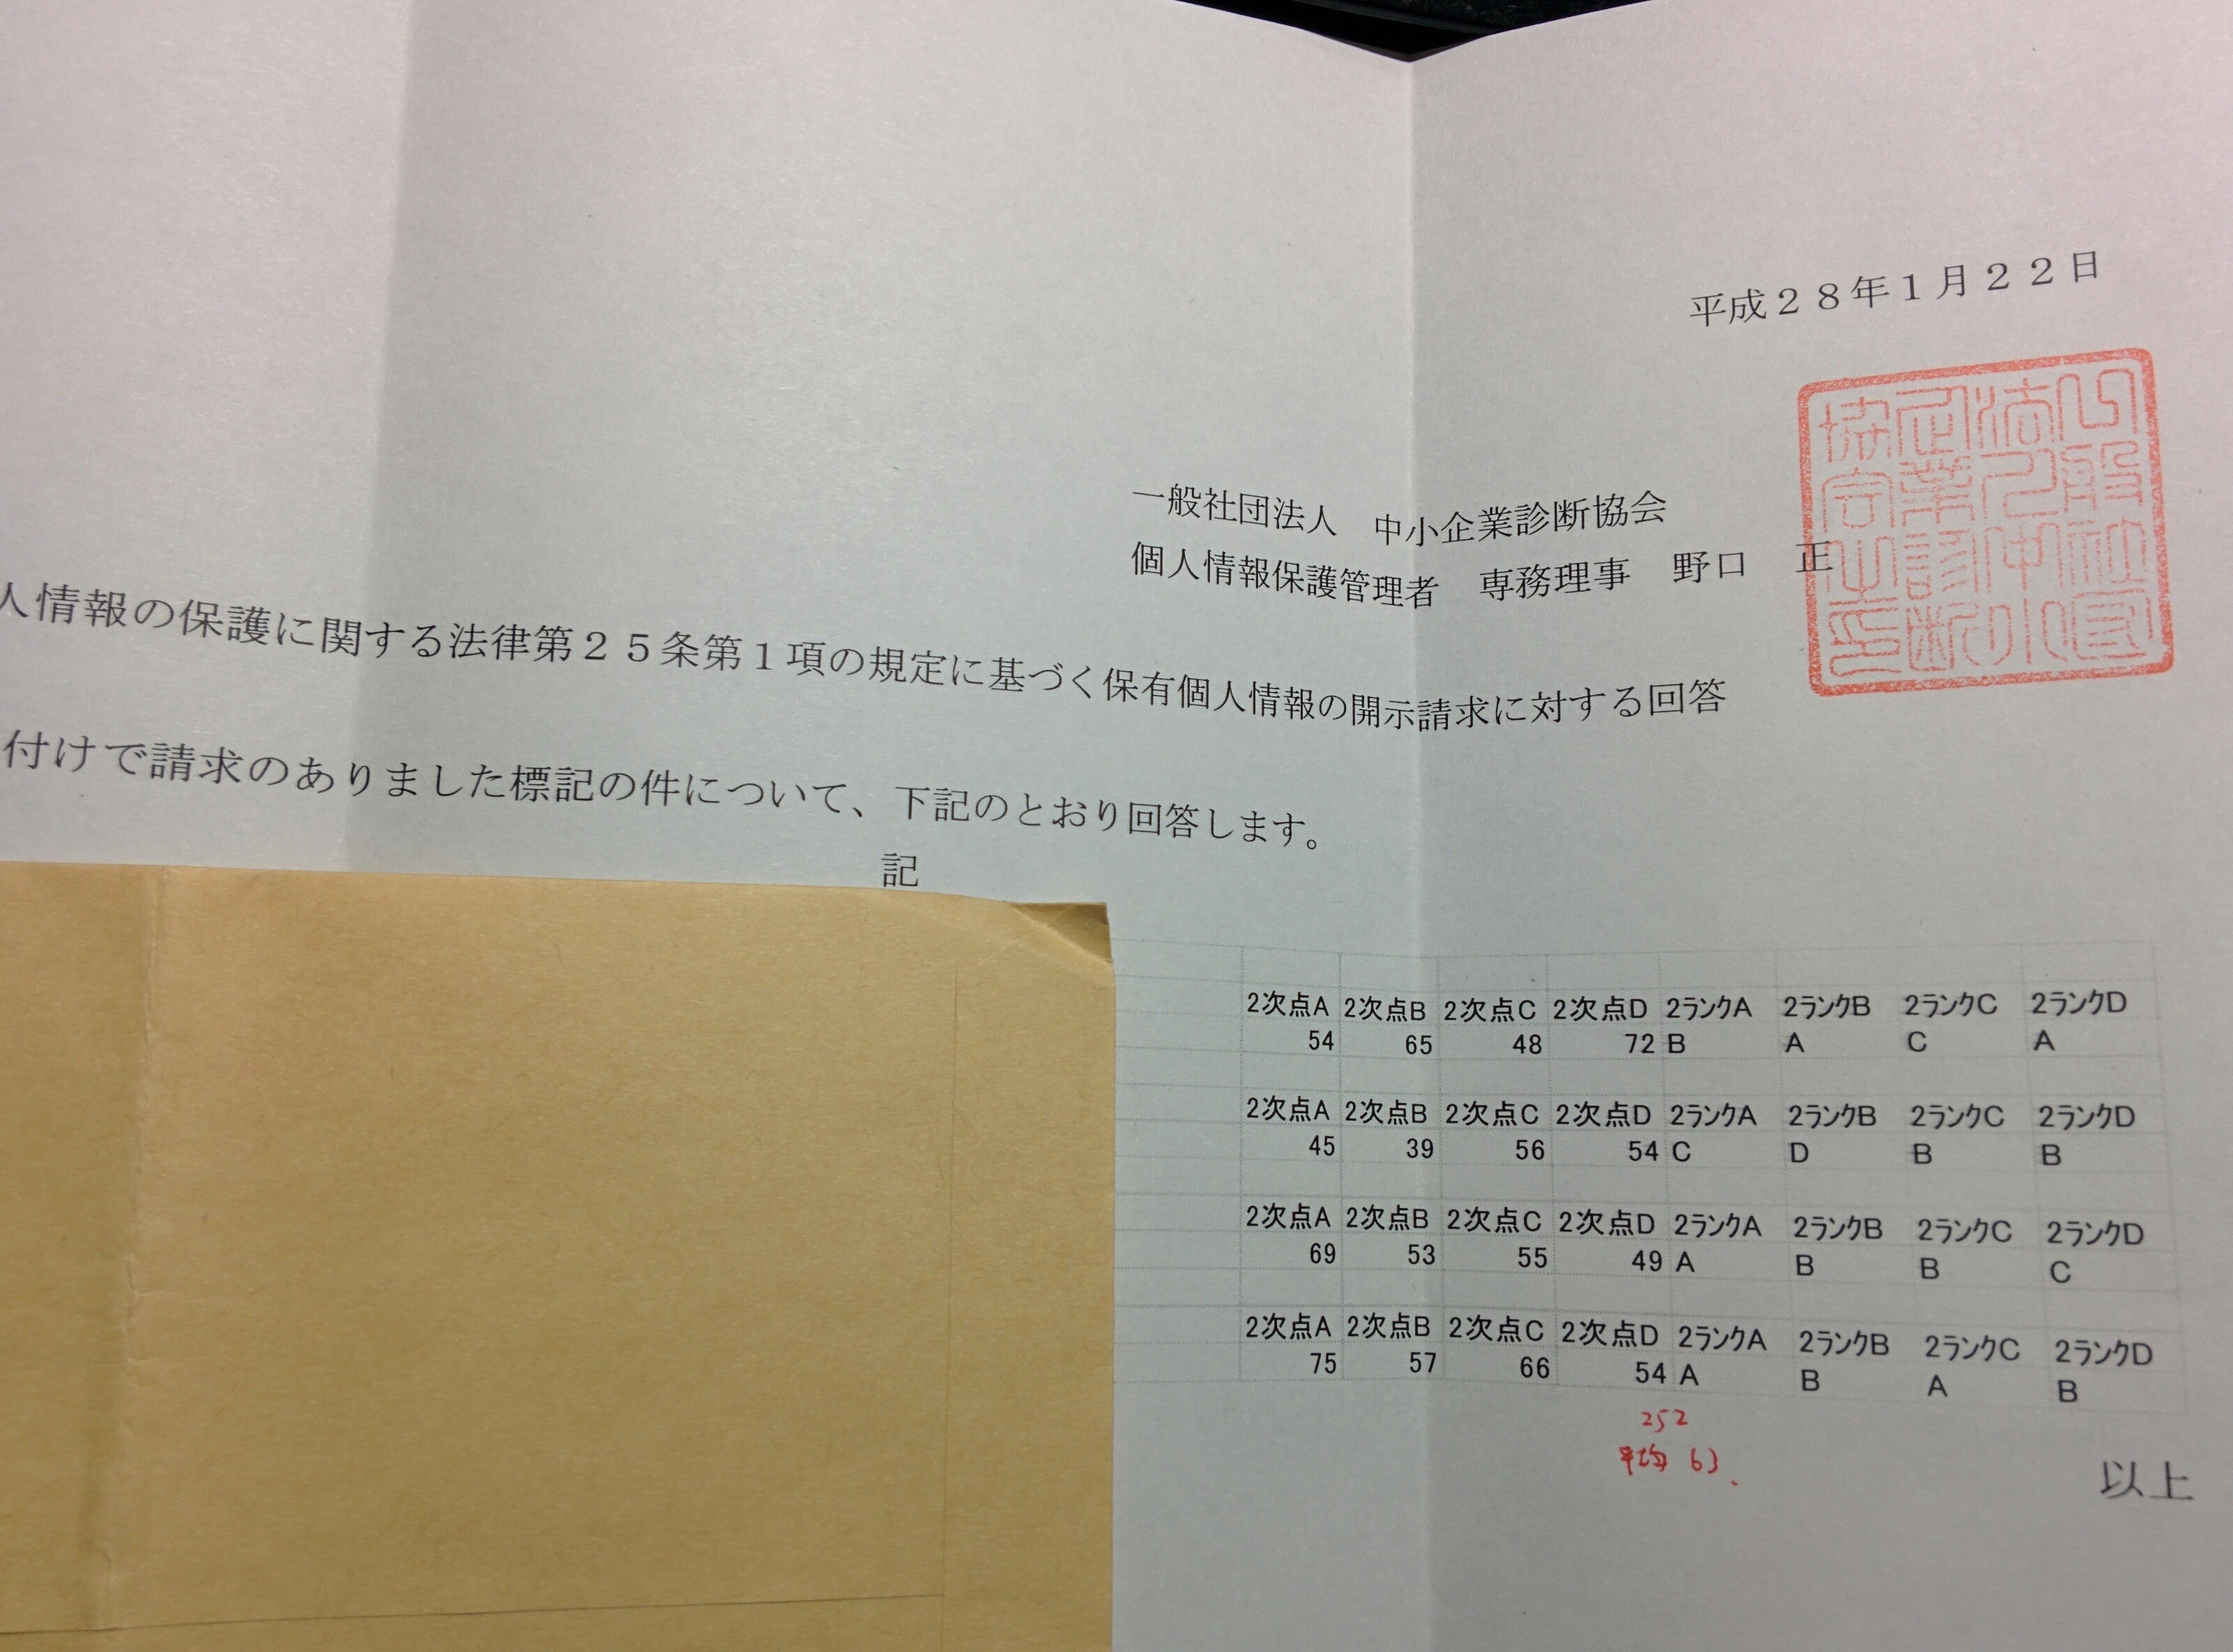 平成２８年１月２２日
一般社団法人　中小企業診断協会
個人情報保護管理者　専務理事　野口　正
人情報の保護に関する法律第２５条第１項の規定に基づく保有個人情報の開示請求に対する回答
付けで請求のありました標記の件について、下記のとおり回答します。
記
2次点A 2次点B 2次点C 2次点D 2ﾗﾝｸA 2ﾗﾝｸB 2ﾗﾝｸC 2ﾗﾝｸD
54 65 48 72 B A C A
2次点A 2次点B 2次点C 2次点D 2ﾗﾝｸA 2ﾗﾝｸB 2ﾗﾝｸC 2ﾗﾝｸD
45 39 56 54 C D B B
2次点A 2次点B 2次点C 2次点D 2ﾗﾝｸA 2ﾗﾝｸB 2ﾗﾝｸC 2ﾗﾝｸD
69 53 55 49 A B B C
2次点A 2次点B 2次点C 2次点D 2ﾗﾝｸA 2ﾗﾝｸB 2ﾗﾝｸC 2ﾗﾝｸD
75 57 66 54 A B A B
252
平均 63.
以上